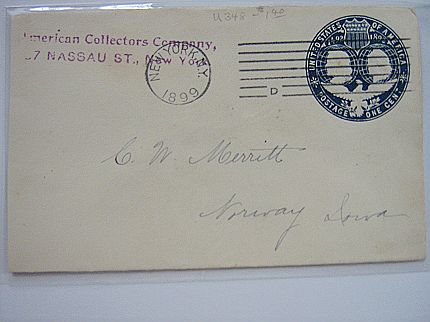 U348 $1.40
merican Collectors Company,
7 NASSAU ST., New Yo
NEW YORK, N.Y.
1899
D
UNITED STATES OF AMERICA
POSTAGE ONE CENT
C. W. Merritt
Norway Iowa